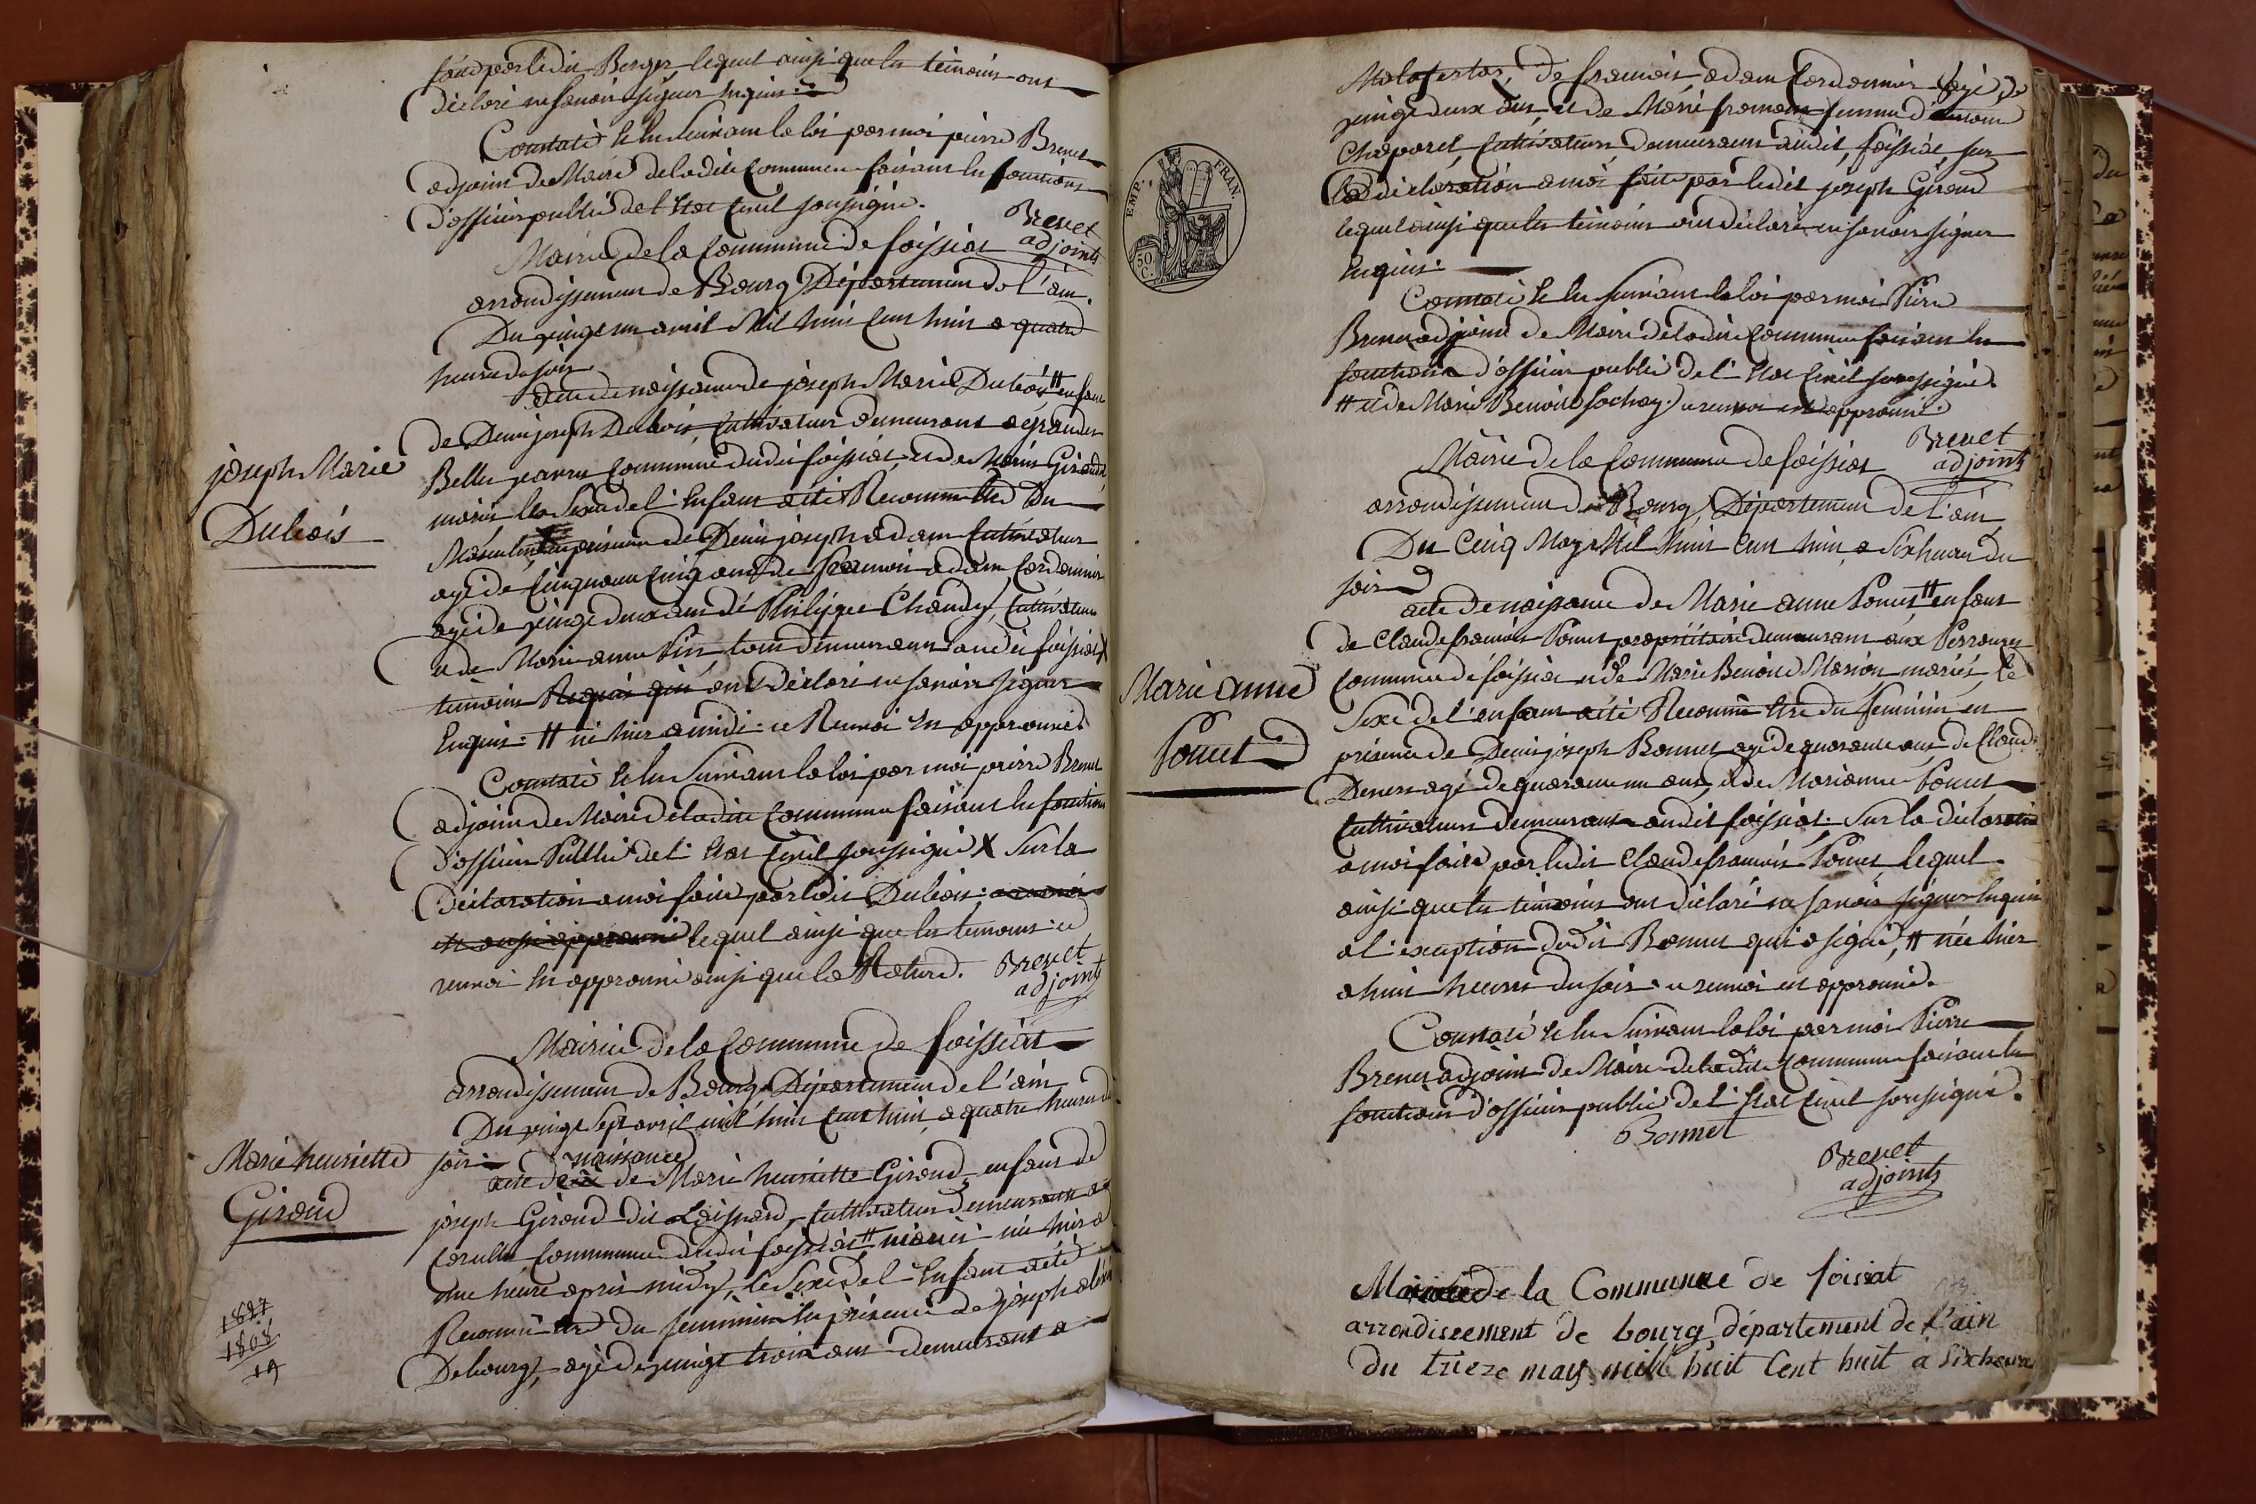 faud par ledit Berger lequel ainsi que les temoins ont
déclaré ne savoir signer enquis
Constaté le lu suivant la loi par moi pierre Brevet
adjoint de Maire de ladite Commune faisant les fonctions
d'officier public de l'Etat Civil soussigné.
Brevet
adjoint
Mairie de la Commune de foissiat
arrondissement de Bourg Département de l'ain.
Du vingt un avril Mil huit Cent huit a quatre
heures du soir
acte de naissance de joseph Marie Dubois # enfant
de Denis joseph Dubois, Cultivateur demeurant a grandes
Belles jeannes Commune dudit foissiat, et de Marie Giroud
joseph Marie
Dubois
mariés le Sexe de l'Enfant a été Reconnu être du
Masculin, en présence de Denis joseph adam Cultivateur
agé de Cinquante Cinq ans, de françois adam Cordonnier
agé de vingt deux ans de Philippe Chaudy, Cultivateur
et de Marie anne Pin, tous demeurans audit foissiat X
temoins Requis qui ont déclaré ne savoir signer
Enquis: # né hier a midi: ce Renvoi Est approuvé
Constaté le lu Suivant la loi par moi pierre Brevet
adjoint de Maire de ladite Commune faisant les fonctions
d'officier Public de l'Etat Civil soussigné X Sur la
déclaration a moi faite par ledit Dubois:
lequel ainsi que les temoins ce
renvoi Est approuvé ainsi que la Rature.
Brevet
adjoint
Mairie de la Commune de foissiat
arrondissement de Bourg Département de l'ain
Du vingt Sept avril mil huit Cent huit, a quatre heures du
soir
naissance
acte de de Marie henriette Giroud, enfant de
Marie henriette
Giroud
joseph Giroud dit Loisnard, Cultivateur demeurant a
Cornelle, Commune dudit foissiat # mariés née hier a
une heure après midy, le Sexe de l'Enfant a été
Reconnu être du feminin En présence de joseph
Debourg, agé de vingt trois ans demeurant a
1827
1808
19
EMP. FRAN.
50
C.
Malafertaz, de françois adam Cordonnier agé de
vingt deux ans, et de Marie froment femme d'antoine
Chaparel, Cultivateurs, demeurans audit foissiat, sur
la déclaration a moi faite par ledit joseph Giroud
lequel ainsi que les temoins ont déclaré ne savoir signer
Enquis.
Constaté le lu suivant la loi par moi Pierre
Brevet adjoint de Maire de ladite Commune faisant les
fonctions d'officier public de l'Etat Civil soussigné.
# et de Marie Benoite Sochay: ce renvoi est approuvé.
Brevet
adjoint
Mairie de la Commune de foissiat
arrondissement de Bourg, Département de l'ain
Du Cinq May Mil huit Cent huit, a Six heures du
soir
acte de naissance de Marie anne Poncet # enfant
de Claude françois Poncet propriétaire demeurant aux Perrouses
Marie anne
Poncet
Commune de foissiat et de Marie Benoite Marion mariés, le
Sexe de l'enfant a été Reconnu être du feminin en
présence de Denis joseph Bonnet agé de quarante ans, de Claude
Denert agé de quarante un ans, et de Marianne Poncet
Cultivateurs demeurans audit foissiat. Sur la déclaration
a moi faite par ledit Claude françois Poncet, lequel
ainsi que les temoins ont déclaré ne savoir signer Enquis
a l'exception dudit Bonnet qui a signé, # née hier
a huit heures du soir. ce renvoi est approuvé.
Constaté le lu Suivant la loi par moi Pierre
Brevet adjoint de Maire de ladite Commune faisant les
fonctions d'officier public de l'Etat Civil soussigné.
Bonnet
Brevet
adjoint
Mairie de la Commune de foissiat
arrondissement de bourg, département de l'ain
du trieze may mille huit Cent huit a Six heures